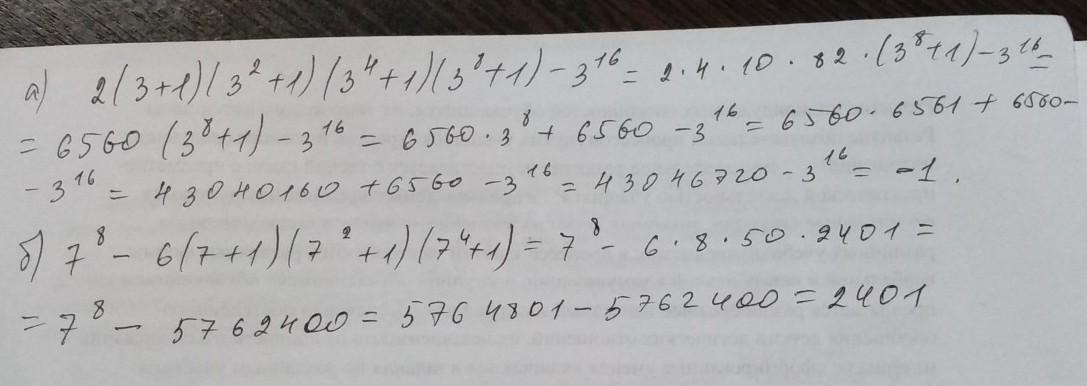 а) 2(3+1)(3²+1)(3⁴+1)(3⁸+1)-3¹⁶= 2·4·10·82·(3⁸+1)-3¹⁶=
= 6560 (3⁸+1)-3¹⁶ = 6560·3⁸+ 6560 -3¹⁶= 6560·6561 + 6560-
-3¹⁶ = 43040160 +6560 -3¹⁶= 43046720-3¹⁶= -1.
б) 7⁸ - 6(7+1)(7²+1)(7⁴+1)= 7⁸- 6·8·50·2401 =
= 7⁸ - 5762400 = 5764801-5762400=2401